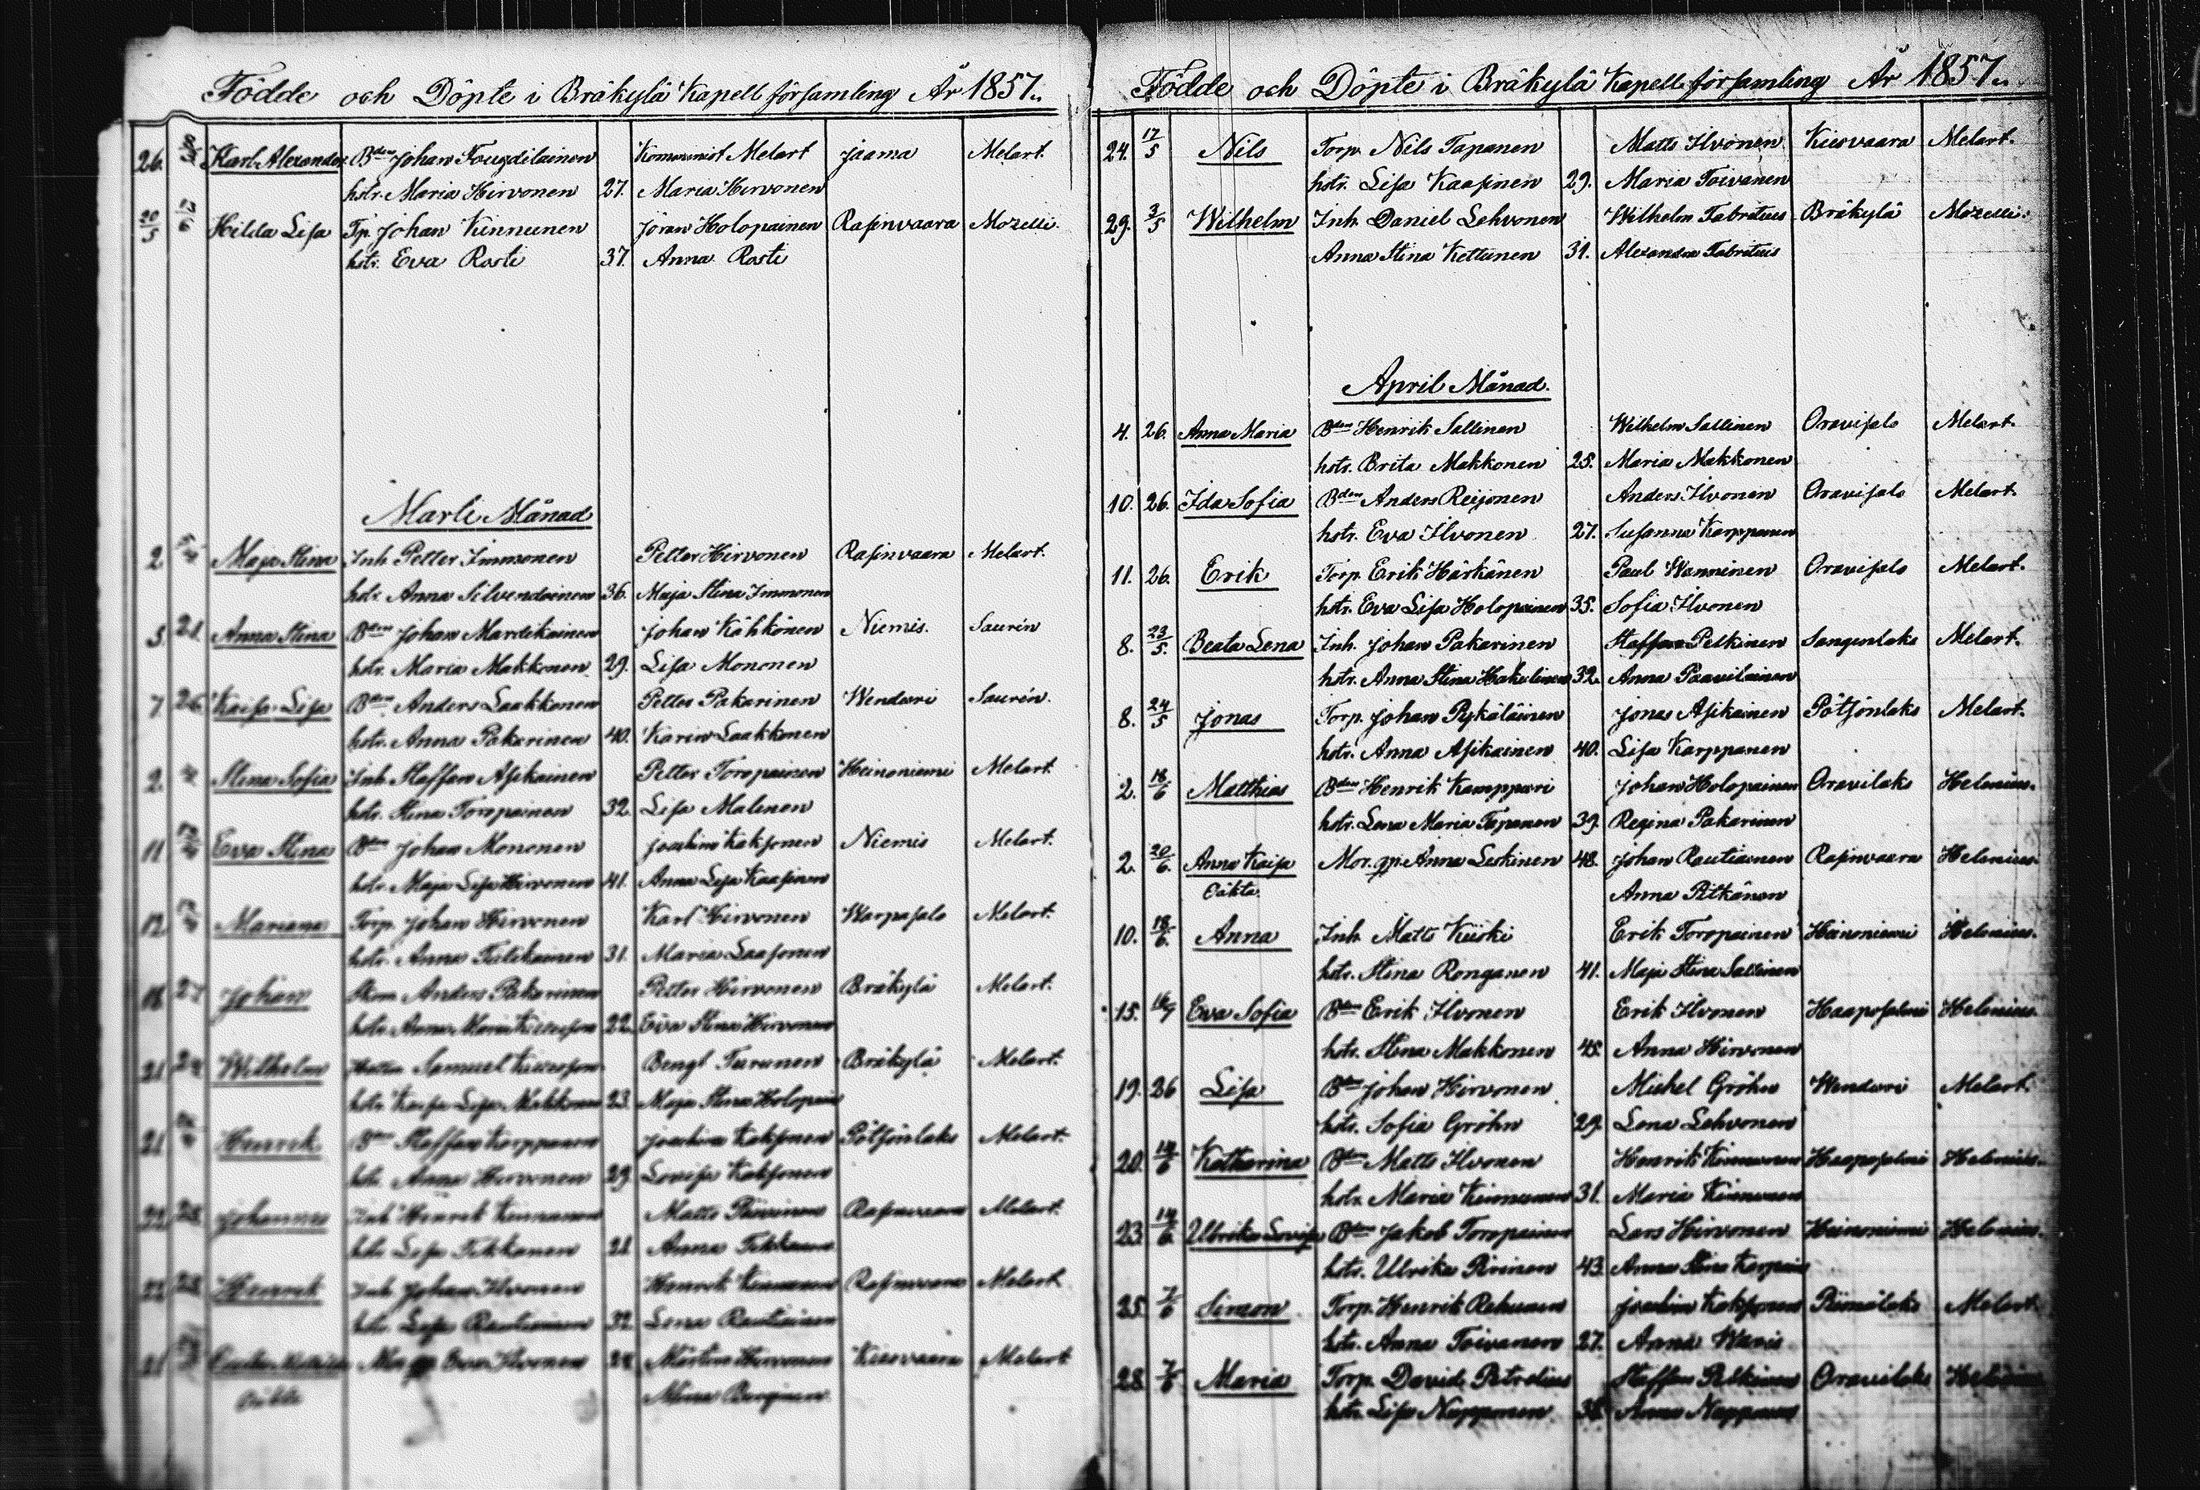 Födde och Döpte i Bräkylä Kapell församling År 1857.
26. Karl Alexander Bden Johan Tougdilainen Komminist Melart Jaama Melart.
hstr. Maria Hirvonen 27. Maria Hirvonen
20/5 Hilda Lisa Tp. Johan Kinnunen Jöran Holopainen Rasinvaara Mozelli.
hstr. Eva Rosti 37. Anna Rosti
Marti Månad
2 Maja Stina Inh. Petter Immonen Petter Hirvonen Rasinvaara Melart.
hstr. Anna Silvendoinen 36. Maja Stina Immonen
5 21. Anna Stina Bden Johan Mardikainen Johan Kähkönen Niemis. Saurén
hstr. Maria Makkonen 29. Lisa Mononen
7 26 Kaisa Lisa Bden Anders Laakkonen Petter Pakarinen Wendari Saurén.
hstr. Anna Pakarinen 40. Karin Laakkonen
2. Stina Sofia Inh. Staffan Asikainen Petter Toropainen Heinoniemi Melart.
hstr. Stina Toropainen 32. Lisa Malinen
11 Eva Stina Bden Johan Mononen Joachim Kaksonen Niemis Melart.
hstr. Maja Lisa Hirvonen 41. Anna Lisa Kaasinen
12 Mariana Torp. Johan Hirvonen Karl Hirvonen Warpasalo Melart.
hstr. Anna 31. Maria Laasonen
18 Johan Anders Pakarinen Petter Hirvonen Bräkylä Melart.
hstr. Anna Maria 22. Eva Stina Hirvonen
21 24 Wilhelm Samuel Bengt Turunen Bräkylä Melart.
hstr. Kaisa Lisa Makkonen 23. Maja Stina Holopain
21 Henrik Bden Staffan Karppanen Joachim Kaksonen Pötsönlaks Melart.
hstr. Anna Hirvonen 29. Lovisa Kaksonen
22 28 Johannes Inh Henrik Kinnunen Matts Rasinvaara Melart.
hstr Lisa Tikkanen 21 Anna Tikkanen
22 28 Henrik Inh Johan Ilvonen Henrik Kinnunen Rasinvaara Melart
hstr. Lisa Rautiainen 32 Lena Rautiainen
21 Eva Ilvonen 24 Mårten Hirvonen Kiesvaara Melart
Oäkta
Födde och Döpte i Bräkylä Kapell församling År 1857.
24. 17/5 Nils Torp. Nils Tapanen Matts Ilvonen Kiesvaara Melart.
hstr. Lisa Kaasinen 29. Maria Toivanen
29. 3/5 Wilhelm Inh. Daniel Lehvonen Wilhelm Fabritius Bräkylä Mozelli.
Anna Stina Kettunen 31. Alexandra Fabritius
April Månad.
4. 26. Anna Maria Bden Henrik Sallinen Wilhelm Sallinen Oravisalo Melart.
hstr. Brita Makkonen 25. Maria Makkonen
10. 26. Ida Sofia Bden Anders Reijonen Anders Ilvonen Oravisalo Melart.
hstr. Eva Ilvonen 27. Susanna Karppanen
11. 26. Erik Torp. Erik Härkänen Paul Wänninen Oravisalo Melart.
hstr. Eva Lisa Holopainen 35. Sofia Ilvonen
8. 23/5. Beata Lena Inh. Johan Pakarinen Staffan Pelkinen Sangenlaks Melart.
hstr. Anna Stina Hakulinen 32. Anna Paavilainen
8. 24/5 Jonas Torp. Johan Pykäläinen Jonas Asikainen Pötsönlaks Melart.
hstr. Anna Asikainen 40. Lisa Karppanen
2. 18/6 Matthias Bden Henrik Kamppuri Johan Holopainen Oravilaks Helenius.
hstr. Lena Maria Tapanen 39. Regina Pakarinen
2. 20/6. Anna Kaisa Mor. gp. Anna Leskinen 48. Johan Rautiainen Rasinvaara Helenius.
Oäkta. Anna Pitkänen
10. 18/6. Anna Inh. Matts Kiiski Erik Toropainen Heinoniemi Helenius.
hstr. Stina Ronganen 41. Maja Stina Sallinen
15. 16/7 Eva Sofia Bden Erik Ilvonen Erik Ilvonen Haaposalmi Helenius.
hstr. Stina Makkonen 45. Anna Hirvonen
19. 26 Lisa Bden Johan Hirvonen Michel Gröhn Wendari Melart.
hstr. Sofia Gröhn 29. Lena Lehvonen
20. 14/6 Katharina Bden Matts Ilvonen Henrik Kinnunen Haaposalmi Helenius.
hstr. Maria Kinnunen 31. Maria Kinnunen
23. 14/6 Ulrika Lovisa Bden Jakob Toropainen Lars Hirvonen Heinoniemi Helenius.
hstr. Ulrika Pirinen 43. Anna Stina Karppain
25. 7/6 Simon Torp. Henrik Rahunen Joachim Kaksonen Piimälaks Melart.
hstr. Anna Toivanen 27. Anna Waris
28. 7/6 Maria Torp. David Petrelius Staffan Pelkinen Oravilaks Helenius
hstr. Lisa Nupponen 38. Anna Nupponen